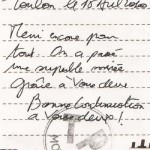 Toulon, le 10 Avril 2010.
Merci encore pour
tout. On a passé
une superbe soirée
Grâce à Vous deux
Bonne Continuation
à Vous deux !